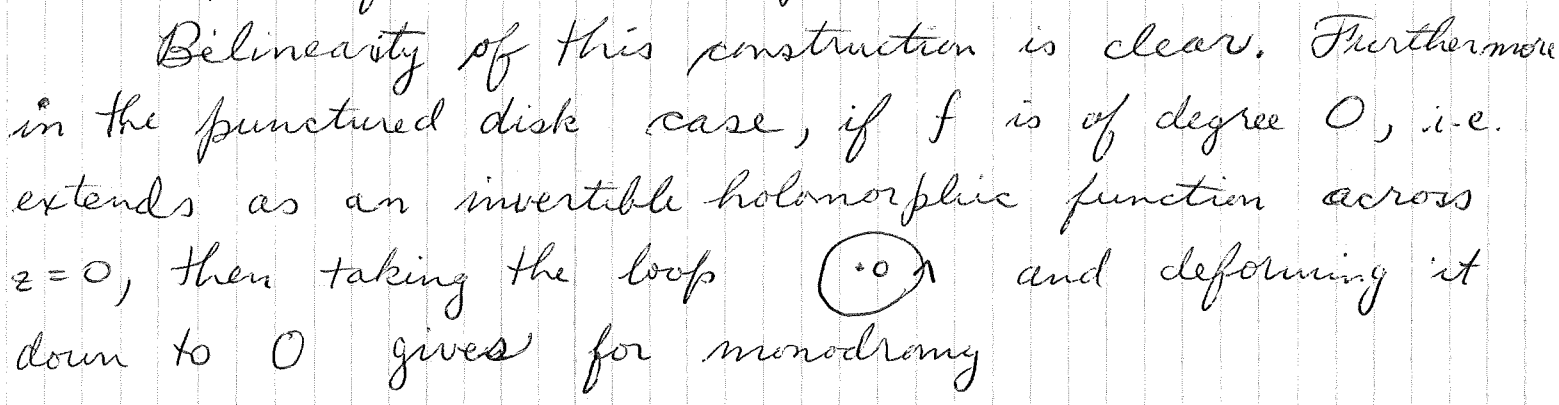 Bilinearity of this construction is clear. Furthermore
in the punctured disk case, if f is of degree 0, i.e.
extends as an invertible holomorphic function across
z = 0, then taking the loop ·0 and deforming it
down to 0 gives for monodromy